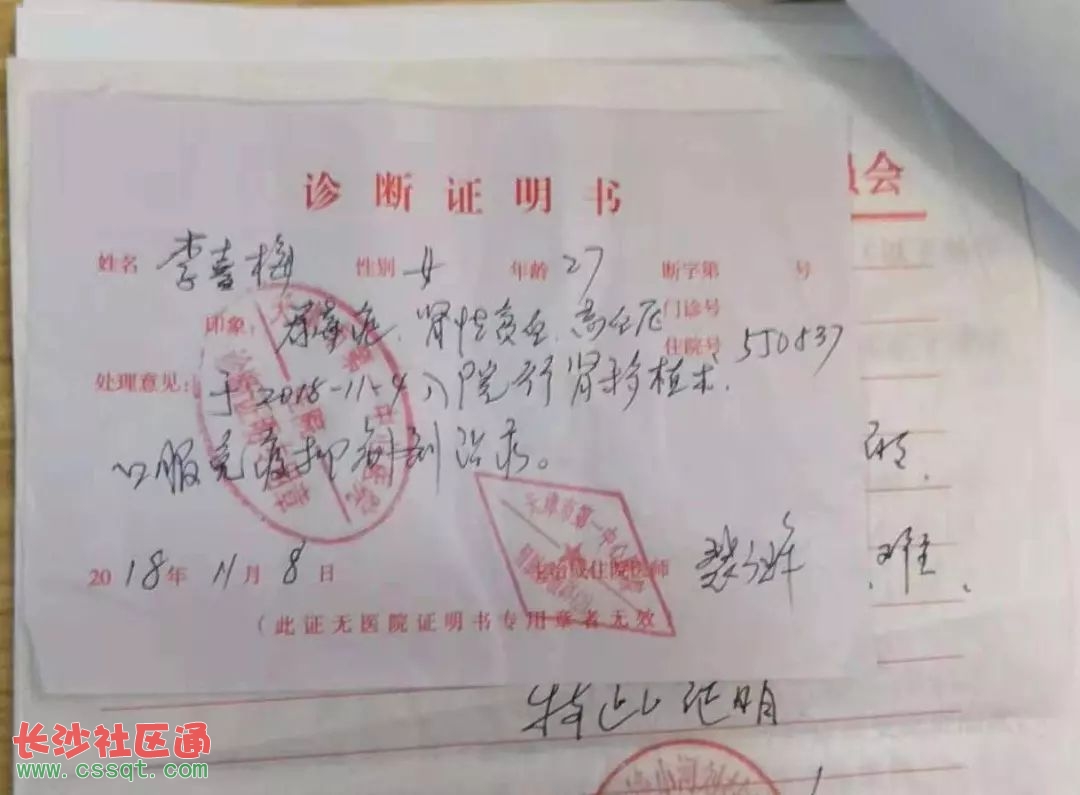 诊断证明书
员会
姓名 李喜梅 性别 女 年龄 27 断字第 号
印象: 尿毒症、肾性贫血、高血压 门诊号
住院号 550837
处理意见: 于2018-11-4入院行肾移植术、
口服免疫抑制剂治疗。
难、
2018年11月8日 主治或住院医师
(此证无医院证明书专用章者无效
天津市第一中
特此证明
长沙社区通
www.cssqt.com